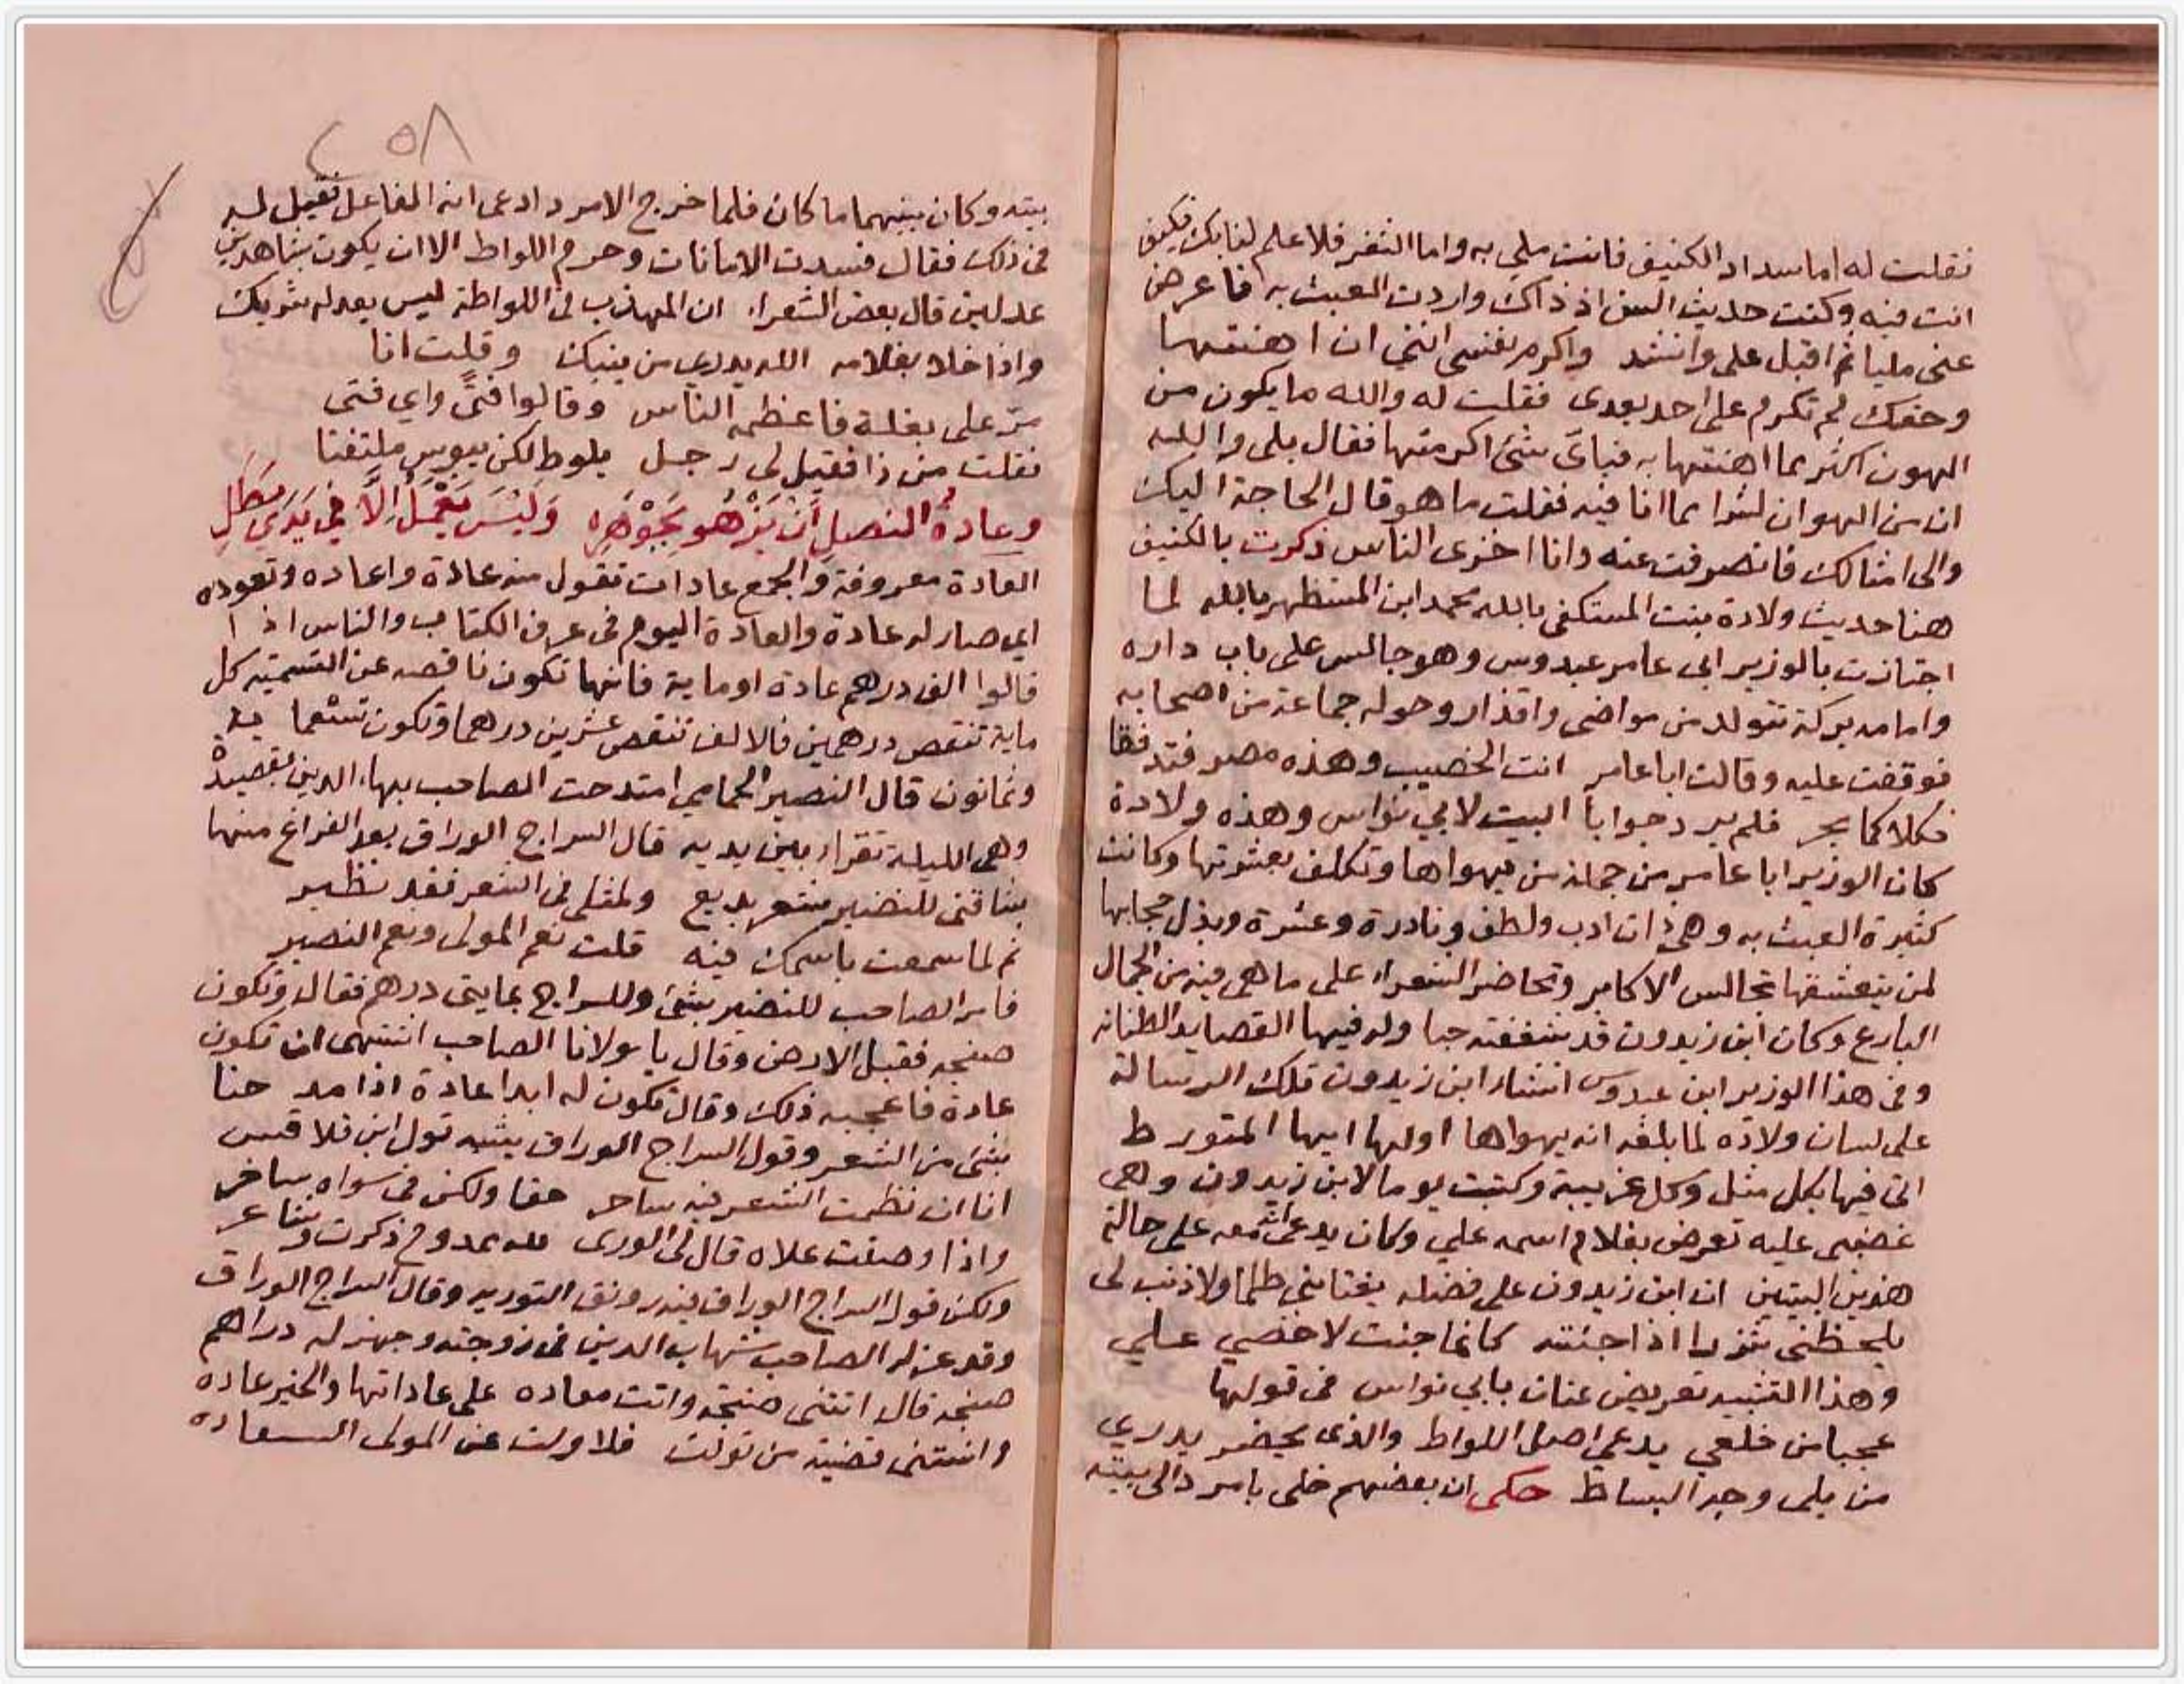 فقلت له اما سداد الكنيف فانت ملي به واما الثغر فلا علم لنا بك كيف
انت فيه وكنت حديث السن اذ ذاك واردت العبث به فاعرض
عنى مليا ثم اقبل على وانشد واكرم نفسى اننى ان اهنتها
وحقك لم تكرم على احد بعدى فقلت له والله ما يكون من
الهون اكثر مما اهنتها به فباى شئ اكرمتها فقال بلى والله
ان من الهوان لشرا مما انا فيه فقلت ما هو قال الحاجة اليك
والى امثالك فانصرفت عنه وانا اخزى الناس ذكرت بالكنيف
هنا حديث ولادة بنت المستكفى بالله محمد ابن المستظهر بالله لما
اجتازت بالوزير ابى عامر عبدوس وهو جالس على باب داره
وامامه بركة تتولد من مواضى واقذار وحوله جماعة من اصحابه
فوقفت عليه وقالت ابا عامر انت الخصيب وهذه مصر فتدفقا
فكلاكما بحر فلم يرد جوابا البيت لابي نواس وهذه ولادة
كان الوزير ابا عامر من جملة من يهواها وتكلف بعشرتها وكانت
كثيرة العبث به وهى ذات ادب ولطف ونادرة وعشرة وبذل حجابها
لمن يتعشقها تجالس الاكابر وتحاضر الشعراء على ما هى فيه من الجمال
البارع وكان ابن زيدون قد شغفته حبا وله فيها القصايد الطنانه
وفى هذا الوزير ابن عبدوس انشاء ابن زيدون تلك الرسالة
على لسان ولاده لما بلغه انه يهواها اولها ايها المتورط
اتى فيها بكل مثل وكل غريبة وكتبت يوما لابن زيدون وهى
غضبى عليه تعرض بغلام اسمه علي وكان يدعى انه معه على حالة
هذين البيتين ان ابن زيدون على فضله يغتابني ظلما ولا ذنب لى
يلحظنى شزرا اذا جئته كانما جئت لاخصي علي
وهذا التشبيه تعريض عنان بابي نواس فى قولها
عجبا من خلعي يدعى اصل اللواط والذى يحضر يدري
من يلى وجه البساط حكى ان بعضهم خلى بامرد الى بيته
٢٥٨
بيته وكان بينهما ما كان فلما خرج الامرد ادعى انه الفاعل فقيل له
فى ذلك فقال فسدت الامانات وحرم اللواط الا ان يكون بشاهدين
عدلين قال بعض الشعراء ان المهذب فى اللواطة ليس يعدله شريك
واذا خلا بغلامه الله يدرى من ينيك وقلت انا
مر على بغلة فاعظمه الناس وقالوا فتًى واي فتى
فقلت من ذا فقيل لى رجل يلوط لكن يبوس ملتفتا
وعادة النصل أن يزهو بجوهره وليس يعمل إلا في يدي بطل
العادة معروفة والجمع عادات تقول منه عادة واعاده وتعوده
اي صار له عادة والعادة اليوم فى عرف الكتاب والناس اذا
قالوا الف درهم عادة او ماية فانها تكون ناقصه عن التسمية كل
ماية تنقص درهمين فالالف تنقص عشرين درهما وتكون تسعماية
وثمانون قال النصير الحمامي امتدحت الصاحب بهاء الدين بقصيدة
وهى الليلة تقراء بين يديه قال السراج الوراق بعد الفراغ منها
شاقنى للنصير شعر بديع ولمثلى فى الشعر نقد نظير
ثم لما سمعت باسمك فيه قلت نعم المولى ونعم النصير
فامر الصاحب للنصير بشئ وللسراج بمايتى درهم فقال وتكون
صنجه فقبل الارض وقال يا مولانا الصاحب اشتهى ان تكون
عادة فاعجبه ذلك وقال تكون له ابدا عادة اذا مدحنا
بشئ من الشعر وقول السراج الوراق يشبه قول ابن قلاقس
انا ان نظمت الشعر فيه ساحر حقا ولكن فى سواه ساخر
واذا وصفت علاه قال لى الورى لله ممدوح ذكرت وشاعر
ولكن قول السراج الوراق فيه رونق التوريه وقال السراج الوراق
وقد عزله الصاحب شهاب الدين فى زوجته وجهز له دراهم
صنجه قال اتتنى صنجة واتت معاده على عاداتها والخير عاده
وانستنى قضية من تولت فلا ولت عن المولى السعاده